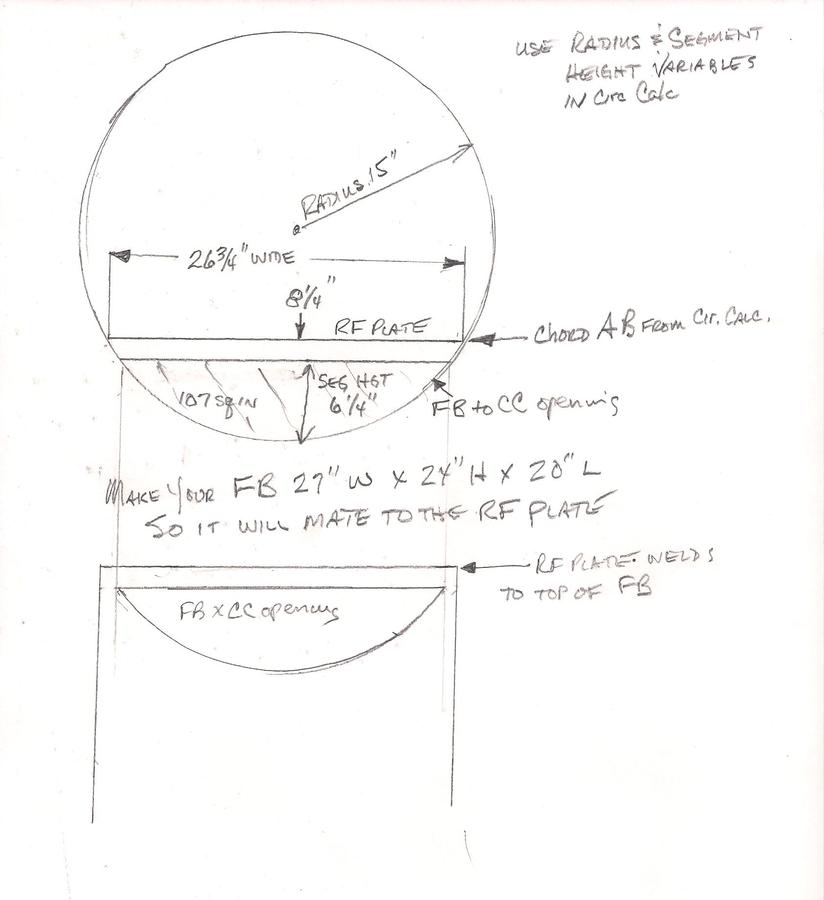 USE RADIUS & SEGMENT
HEIGHT VARIABLES
IN Circ Calc
RADIUS 15"
26 3/4" WIDE
8 1/4"
RF PLATE
CHORD AB FROM Cir. CALC.
SEG HGT
6 1/4"
107 sq in
FB to CC opening
MAKE YOUR FB 27" W x 24" H x 20" L
SO IT WILL MATE TO THE RF PLATE
RF PLATE WELDS
TO TOP OF FB
FB x CC opening